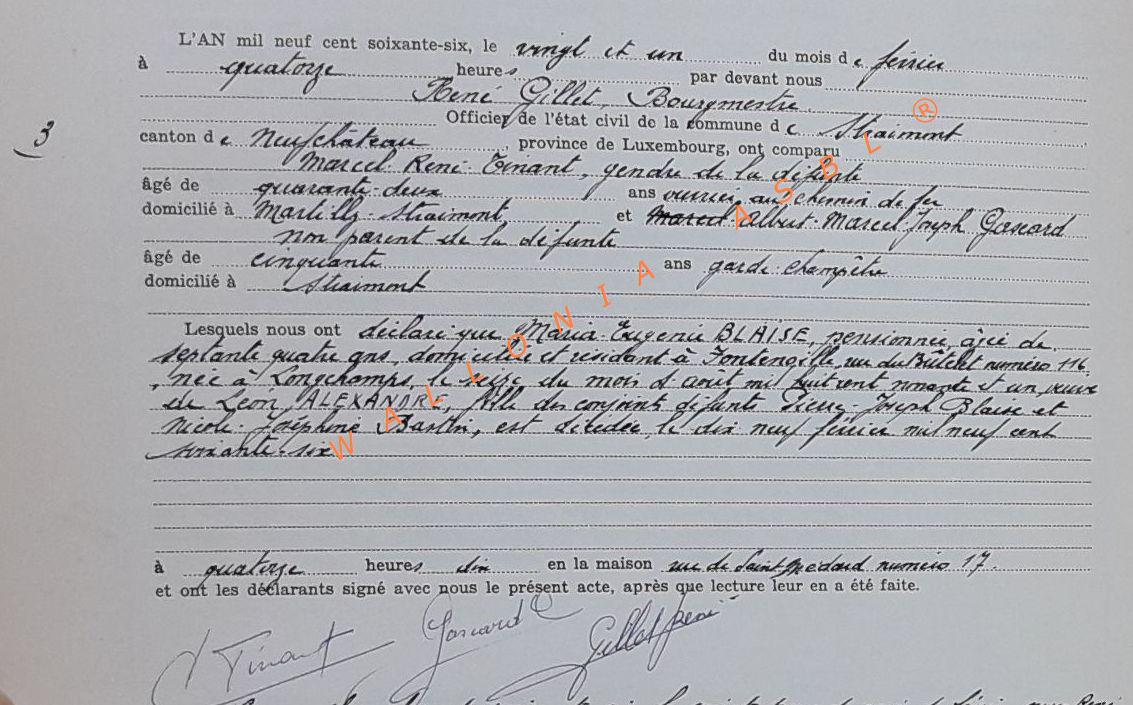 L'AN mil neuf cent soixante-six, le vingt et un du mois de février
à quatorze heures par devant nous
René Gillet, Bourgmestre
Officier de l'état civil de la commune de Straimont
3
canton de Neufchâteau, province de Luxembourg, ont comparu
Marcel René Tinant, gendre de la défunte
âgé de quarante-deux ans ouvrier au chemin de fer
domicilié à Martilly-Straimont, et Marcel Albert-Marcel Joseph Gascard
non parent de la défunte
âgé de cinquante ans garde-champêtre
domicilié à Straimont
Lesquels nous ont déclaré que Maria-Eugenie BLAISE, pensionnée, âgée de
septante quatre ans, domiciliée et résidant à Fontenoille, rue du numéro 116
, née à Longchamps, le seize du mois d'août mil huit cent nonante et un, veuve
de Léon ALEXANDRE, fille des conjoints défunts Pierre-Joseph Blaise et
Nicole-Joséphine Bastin, est décédée, le dix neuf février mil neuf cent
soixante-six
WALLONIA ASBL ®
à quatorze heures dix en la maison rue de Saint-Médard numéro 17
et ont les déclarants signé avec nous le présent acte, après que lecture leur en a été faite.
Tinant Gascard Gillet René